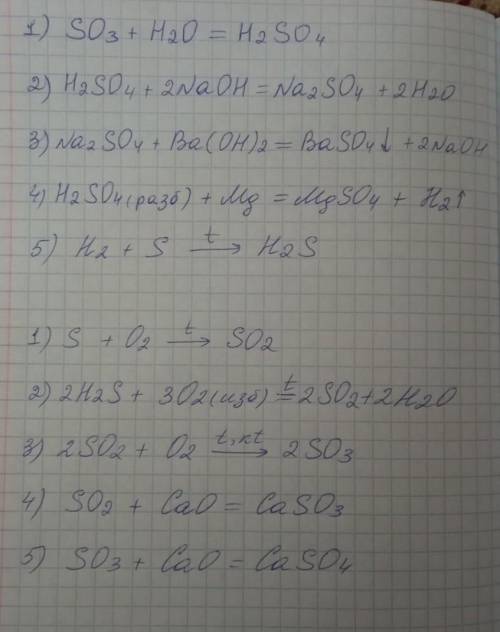 1) SO3 + H2O = H2SO4
2) H2SO4 + 2NaOH = Na2SO4 + 2H2O
3) Na2SO4 + Ba(OH)2 = BaSO4↓ + 2NaOH
4) H2SO4(разб) + Mg = MgSO4 + H2↑
5) H2 + S t→ H2S
1) S + O2 t→ SO2
2) 2H2S + 3O2(изб) t= 2SO2 + 2H2O
3) 2SO2 + O2 t, кt→ 2SO3
4) SO2 + CaO = CaSO3
5) SO3 + CaO = CaSO4